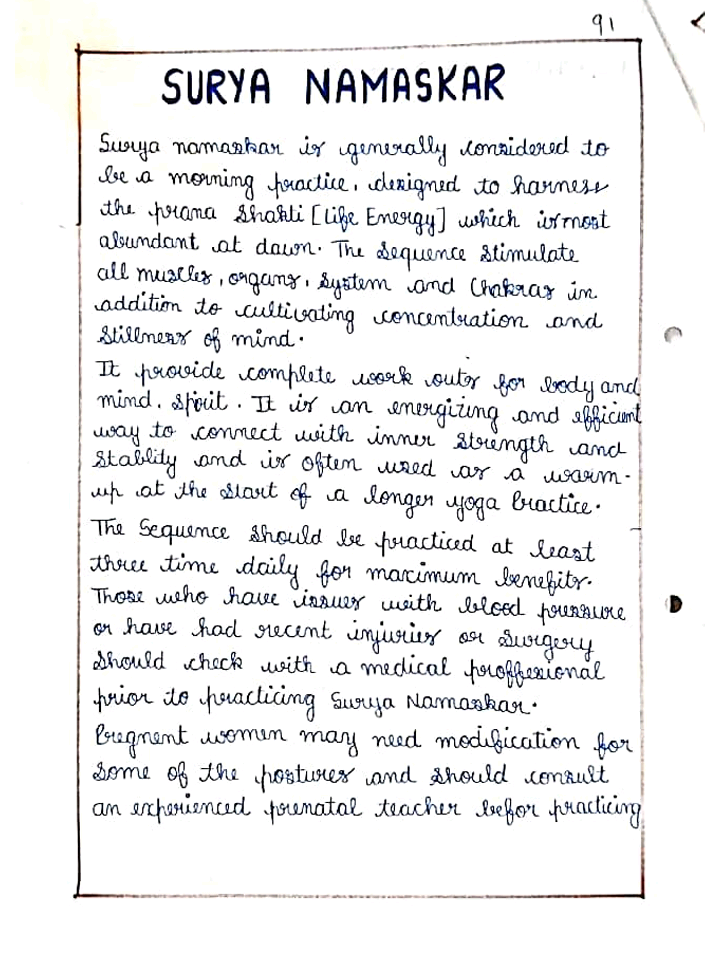 91
SURYA NAMASKAR
Surya namaskar is generally considered to
be a morning practice, designed to harness
the prana shakti [Life Energy] which is most
abundant at dawn. The Sequence Stimulate
all muscles, organs, System and Chakras in
addition to cultivating concentration and
Stillness of mind.
It provide complete work outs for body and
mind. Spirit. It is an energizing and efficient
way to connect with inner Strength and
Stablity and is often used as a warm-
up at the start of a longer yoga Practice.
The Sequence should be practiced at least
three time daily for maximum benefits.
Those who have issues with blood pressure
or have had recent injuries or Surgery
Should check with a medical proffesional
prior to practicing Surya Namaskar.
Pregnent women may need modification for
Some of the postures and should consult
an experienced prenatal teacher befor practicing